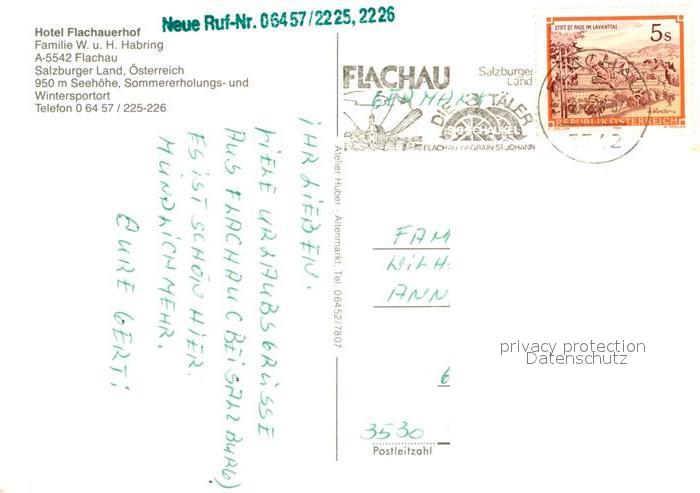 Hotel Flachauerhof
Familie W. u. H. Habring
A-5542 Flachau
Salzburger Land, Österreich
950 m Seehöhe, Sommererholungs- und
Wintersportort
Telefon 0 64 57 / 225-226
Neue Ruf-Nr. 06457/2225, 2226
IHR LIEBEN.
VIELE URLAUBSGRÜSSE
AUS FLACHAU (BEI SALZBURG)
ES IST SCHÖN HIER.
MÜNDLICH MEHR.
EURE GERTI
Atelier Huber - Altenmarkt, Tel. 06452/7807
FLACHAU
Salzburger
Land
DREI TÄLER
SKISCHAUKEL
FLACHAU-WAGRAIN-ST.JOHANN
5542
STIFT ST. PAUL IM LAVANTTAL
5s
REPUBLIK ÖSTERREICH
FAM
WILH
ANN
6
3530
Postleitzahl
privacy protection
Datenschutz